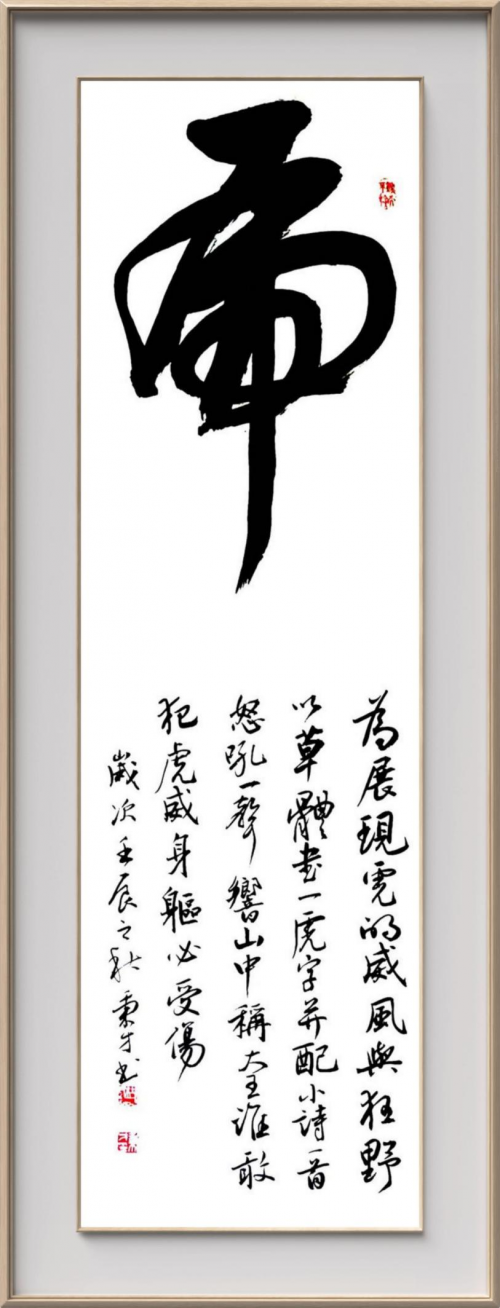 虎
為展現虎的威風與狂野
以草體書一虎字并配小詩一首
怒吼一聲響山中稱大王誰敢
犯虎威身軀必受傷
歲次壬辰之秋秉才書